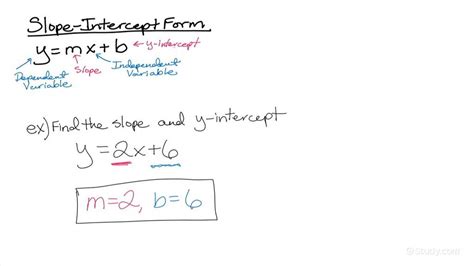 Slope-Intercept Form
y=mx+b ← y-intercept
Dependent Variable
Slope
Independent Variable
ex) Find the slope and y-intercept
y=2x+6
m=2, b=6
© Study.com